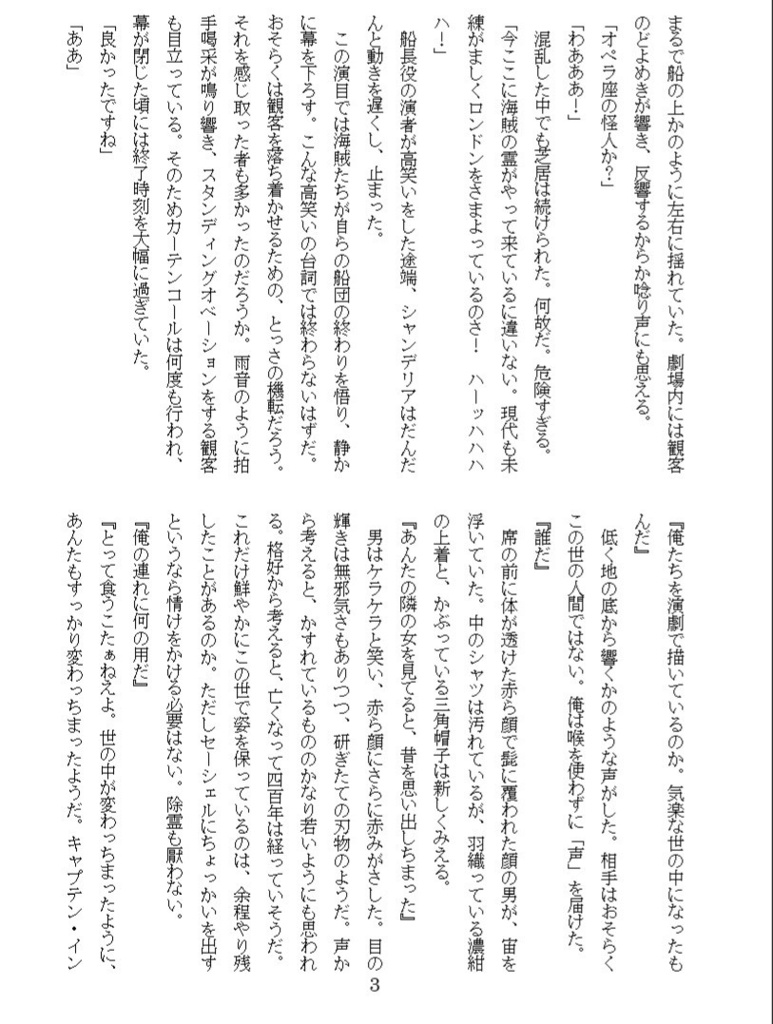 まるで船の上かのように左右に揺れていた。劇場内には観客
のどよめきが響き、反響するからか唸り声にも思える。
「オペラ座の怪人か？」
「わあああ！」
　混乱した中でも芝居は続けられた。何故だ。危険すぎる。
「今ここに海賊の霊がやって来ているに違いない。現代も未
練がましくロンドンをさまよっているのさ！　ハーッハハハ
ハ！」
　船長役の演者が高笑いをした途端、シャンデリアはだんだ
んと動きを遅くし、止まった。
　この演目では海賊たちが自らの船団の終わりを悟り、静か
に幕を下ろす。こんな高笑いの台詞では終わらないはずだ。
おそらくは観客を落ち着かせるための、とっさの機転だろう。
それを感じ取った者も多かったのだろうか。雨音のように拍
手喝采が鳴り響き、スタンディングオベーションをする観客
も目立っている。そのためカーテンコールは何度も行われ、
幕が閉じた頃には終了時刻を大幅に過ぎていた。
「良かったですね」
「ああ」
『俺たちを演劇で描いているのか。気楽な世の中になったも
んだ』
　低く地の底から響くかのような声がした。相手はおそらく
この世の人間ではない。俺は喉を使わずに「声」を届けた。
『誰だ』
　席の前に体が透けた赤ら顔で髭に覆われた顔の男が、宙を
浮いていた。中のシャツは汚れているが、羽織っている濃紺
の上着と、かぶっている三角帽子は新しくみえる。
『あんたの隣の女を見てると、昔を思い出しちまった』
　男はケラケラと笑い、赤ら顔にさらに赤みがさした。目の
輝きは無邪気さもありつつ、研ぎたての刃物のようだ。声か
ら考えると、かすれているもののかなり若いようにも思われ
る。格好から考えると、亡くなって四百年は経っていそうだ。
これだけ鮮やかにこの世で姿を保っているのは、余程やり残
したことがあるのか。ただしセーシェルにちょっかいを出す
というなら情けをかける必要はない。除霊も厭わない。
『俺の連れに何の用だ』
『とって食うこたぁねえよ。世の中が変わっちまったように、
あんたもすっかり変わっちまったようだ。キャプテン・イン
3